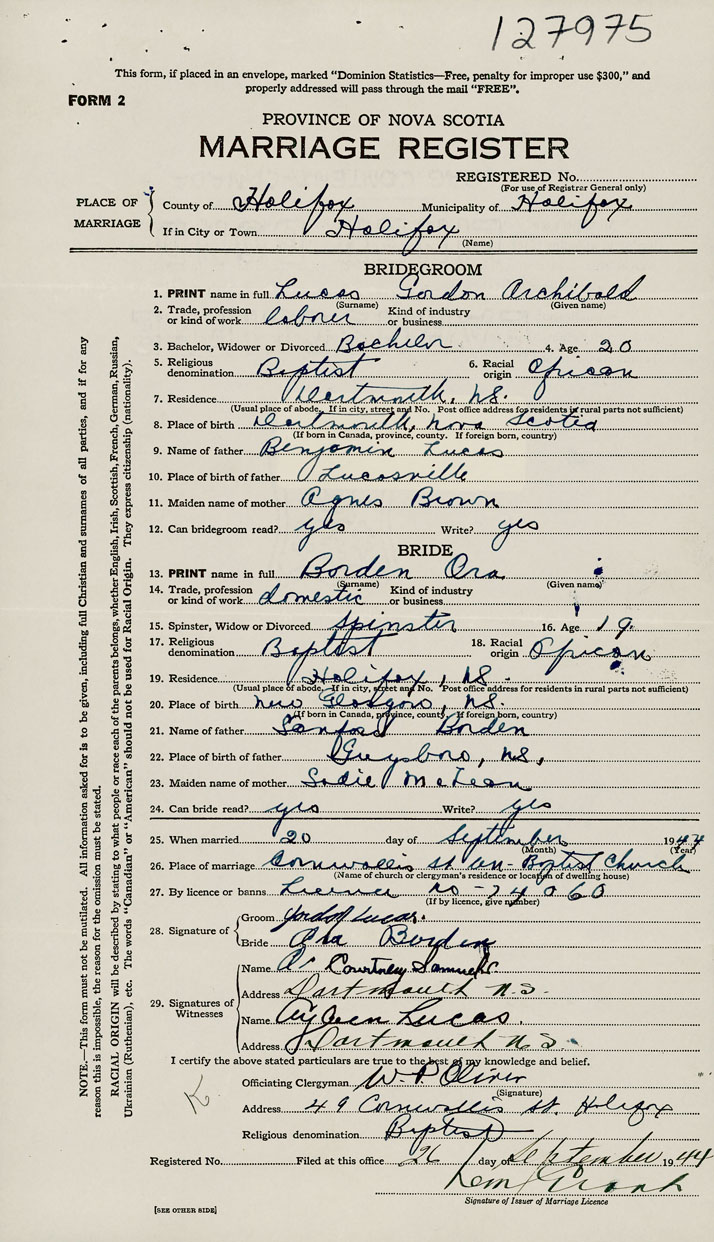 127975
This form, if placed in an envelope, marked "Dominion Statistics—Free, penalty for improper use $300," and
properly addressed will pass through the mail "FREE".
FORM 2
PROVINCE OF NOVA SCOTIA
MARRIAGE REGISTER
REGISTERED No.
(For use of Registrar General only)
PLACE OF MARRIAGE
County of Halifax Municipality of Halifax
If in City or Town Halifax
(Name)
BRIDEGROOM
1. PRINT name in full Lucas Gordon Archibald
(Surname) (Given name)
2. Trade, profession or kind of work laborer Kind of industry or business
3. Bachelor, Widower or Divorced Bachelor 4. Age 20
5. Religious denomination Baptist 6. Racial origin African
7. Residence Dartmouth, N.S.
(Usual place of abode. If in city, street and No. Post office address for residents in rural parts not sufficient)
8. Place of birth Dartmouth, Nova Scotia
(If born in Canada, province, county. If foreign born, country)
9. Name of father Benjamin Lucas
10. Place of birth of father Lucasville
11. Maiden name of mother Agnes Brown
12. Can bridegroom read? yes Write? yes
BRIDE
13. PRINT name in full Borden Ora
(Surname) (Given name)
14. Trade, profession or kind of work domestic Kind of industry or business
15. Spinster, Widow or Divorced Spinster 16. Age 19
17. Religious denomination Baptist 18. Racial origin African
19. Residence Halifax, N.S.
(Usual place of abode. If in city, street and No. Post office address for residents in rural parts not sufficient)
20. Place of birth New Glasgow, N.S.
(If born in Canada, province, county. If foreign born, country)
21. Name of father Sanford Borden
22. Place of birth of father Guysboro, N.S,
23. Maiden name of mother Sadie McLean
24. Can bride read? yes Write? yes
25. When married 20 day of September 1944
(Month) (Year)
26. Place of marriage Cornwallis st un- Baptist Church
(Name of church or clergyman's residence or location of dwelling house)
27. By licence or banns Licence no - 74060
(If by licence, give number)
28. Signature of
Groom Gordon Lucas.
Bride Ora Borden
29. Signatures of Witnesses
Name Courtney Samuels
Address Dartmouth N.S.
Name Lucas.
Address Dartmouth N.S.
I certify the above stated particulars are true to the best of my knowledge and belief.
Officiating Clergyman W. P. Oliver
(Signature)
Address 49 Cornwallis st. Halifax
Religious denomination Baptist
Registered No. Filed at this office 26 day of September 1944
Signature of Issuer of Marriage Licence
[SEE OTHER SIDE]
K
NOTE.—This form must not be mutilated. All information asked for is to be given, including full Christian and surnames of all parties, and if for any
reason this is impossible, the reason for the omission must be stated.
RACIAL ORIGIN will be described by stating to what people or race each of the parents belongs, whether English, Irish, Scottish, French, German, Russian,
Ukrainian (Ruthenian), etc. The words "Canadian" or "American" should not be used for Racial Origin. They express citizenship (nationality).